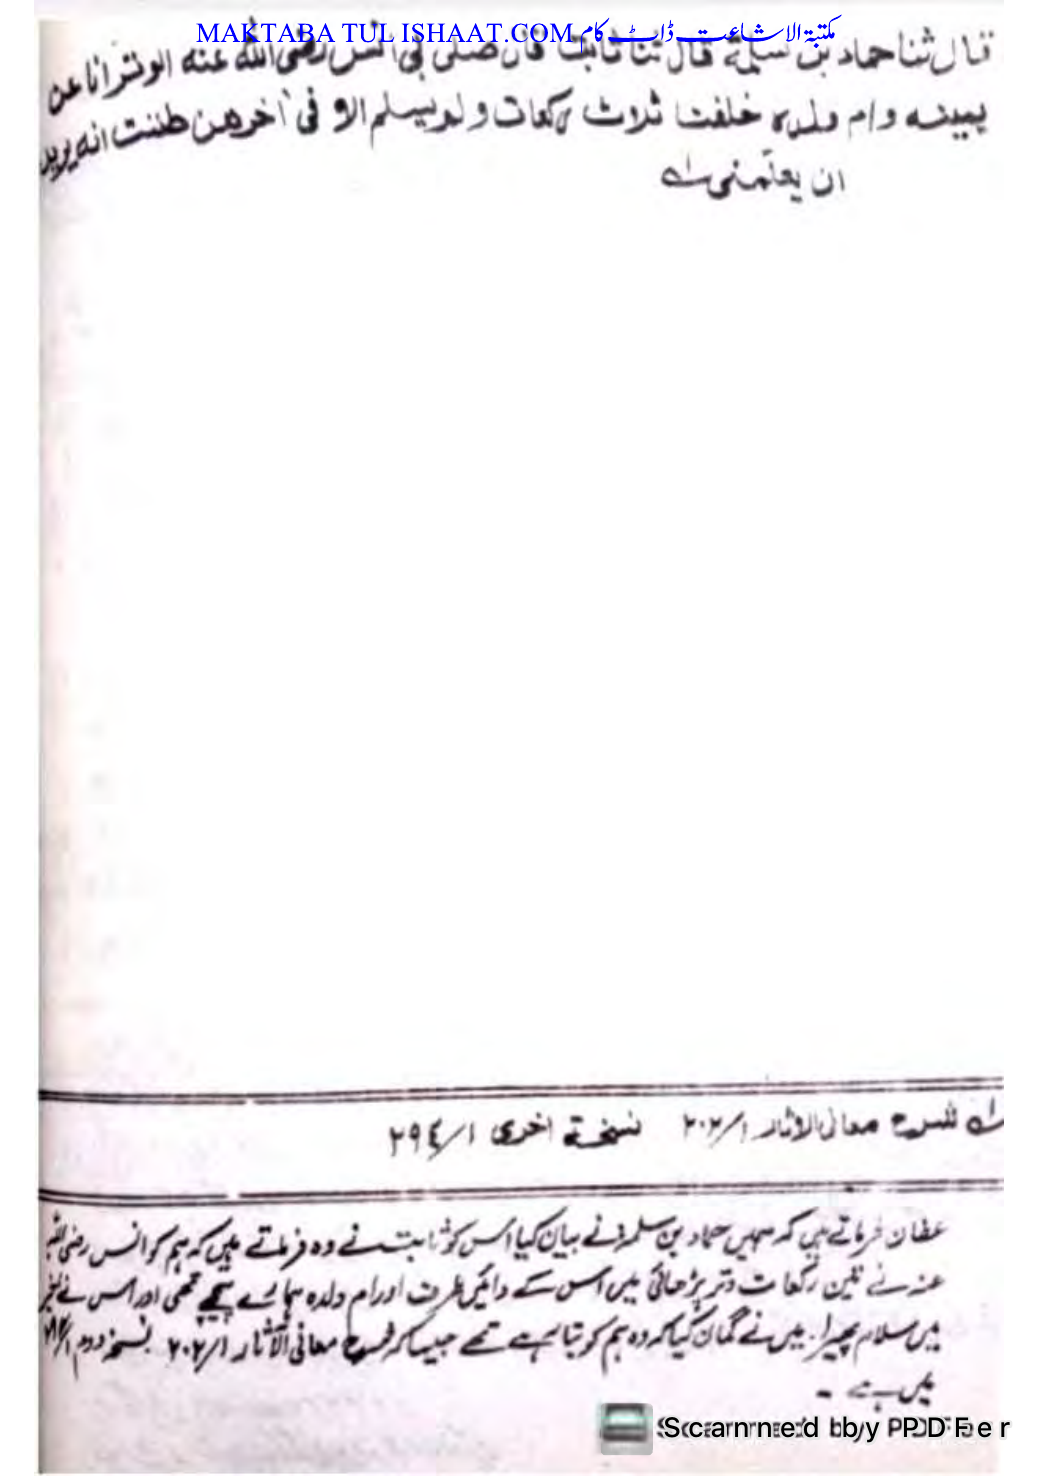 MAKTABA TUL ISHAAT.COM مکتبۃ الاشاعت ڈاٹ کام
قال ثنا حماد بن سلمة قال ثنا ثابت قال صلى بي انس رضى الله عنه الوتر انا عن
يمينه وام ولده خلفنا ثلاث ركعات ولم يسلم الا فى اخرهن ظننت انه يريد
ان يعلمنى ١ے
١ے شرح معانى الاثار ٢٠٢/١ نسخة اخرى ٢٩٤/١
عفان فرماتے ہیں کہ ہمیں حماد بن سلمہ نے بیان کیا اس کو ثابت نے وہ فرماتے ہیں کہ ہم کو انس رضی اللہ
عنہ نے تین رکعات وتر پڑھائی میں اس کے دائیں طرف اور ام ولدہ ہمارے پیچھے تھی اور اس نے اخیر
میں سلام پھیرا۔ میں نے گمان کیا کہ وہ ہم کو بتا رہے تھے جیسا کہ شرح معانی الآثار ٢٠٢/١ نسخہ دوم
میں ہے ۔
Scanned by PDFer